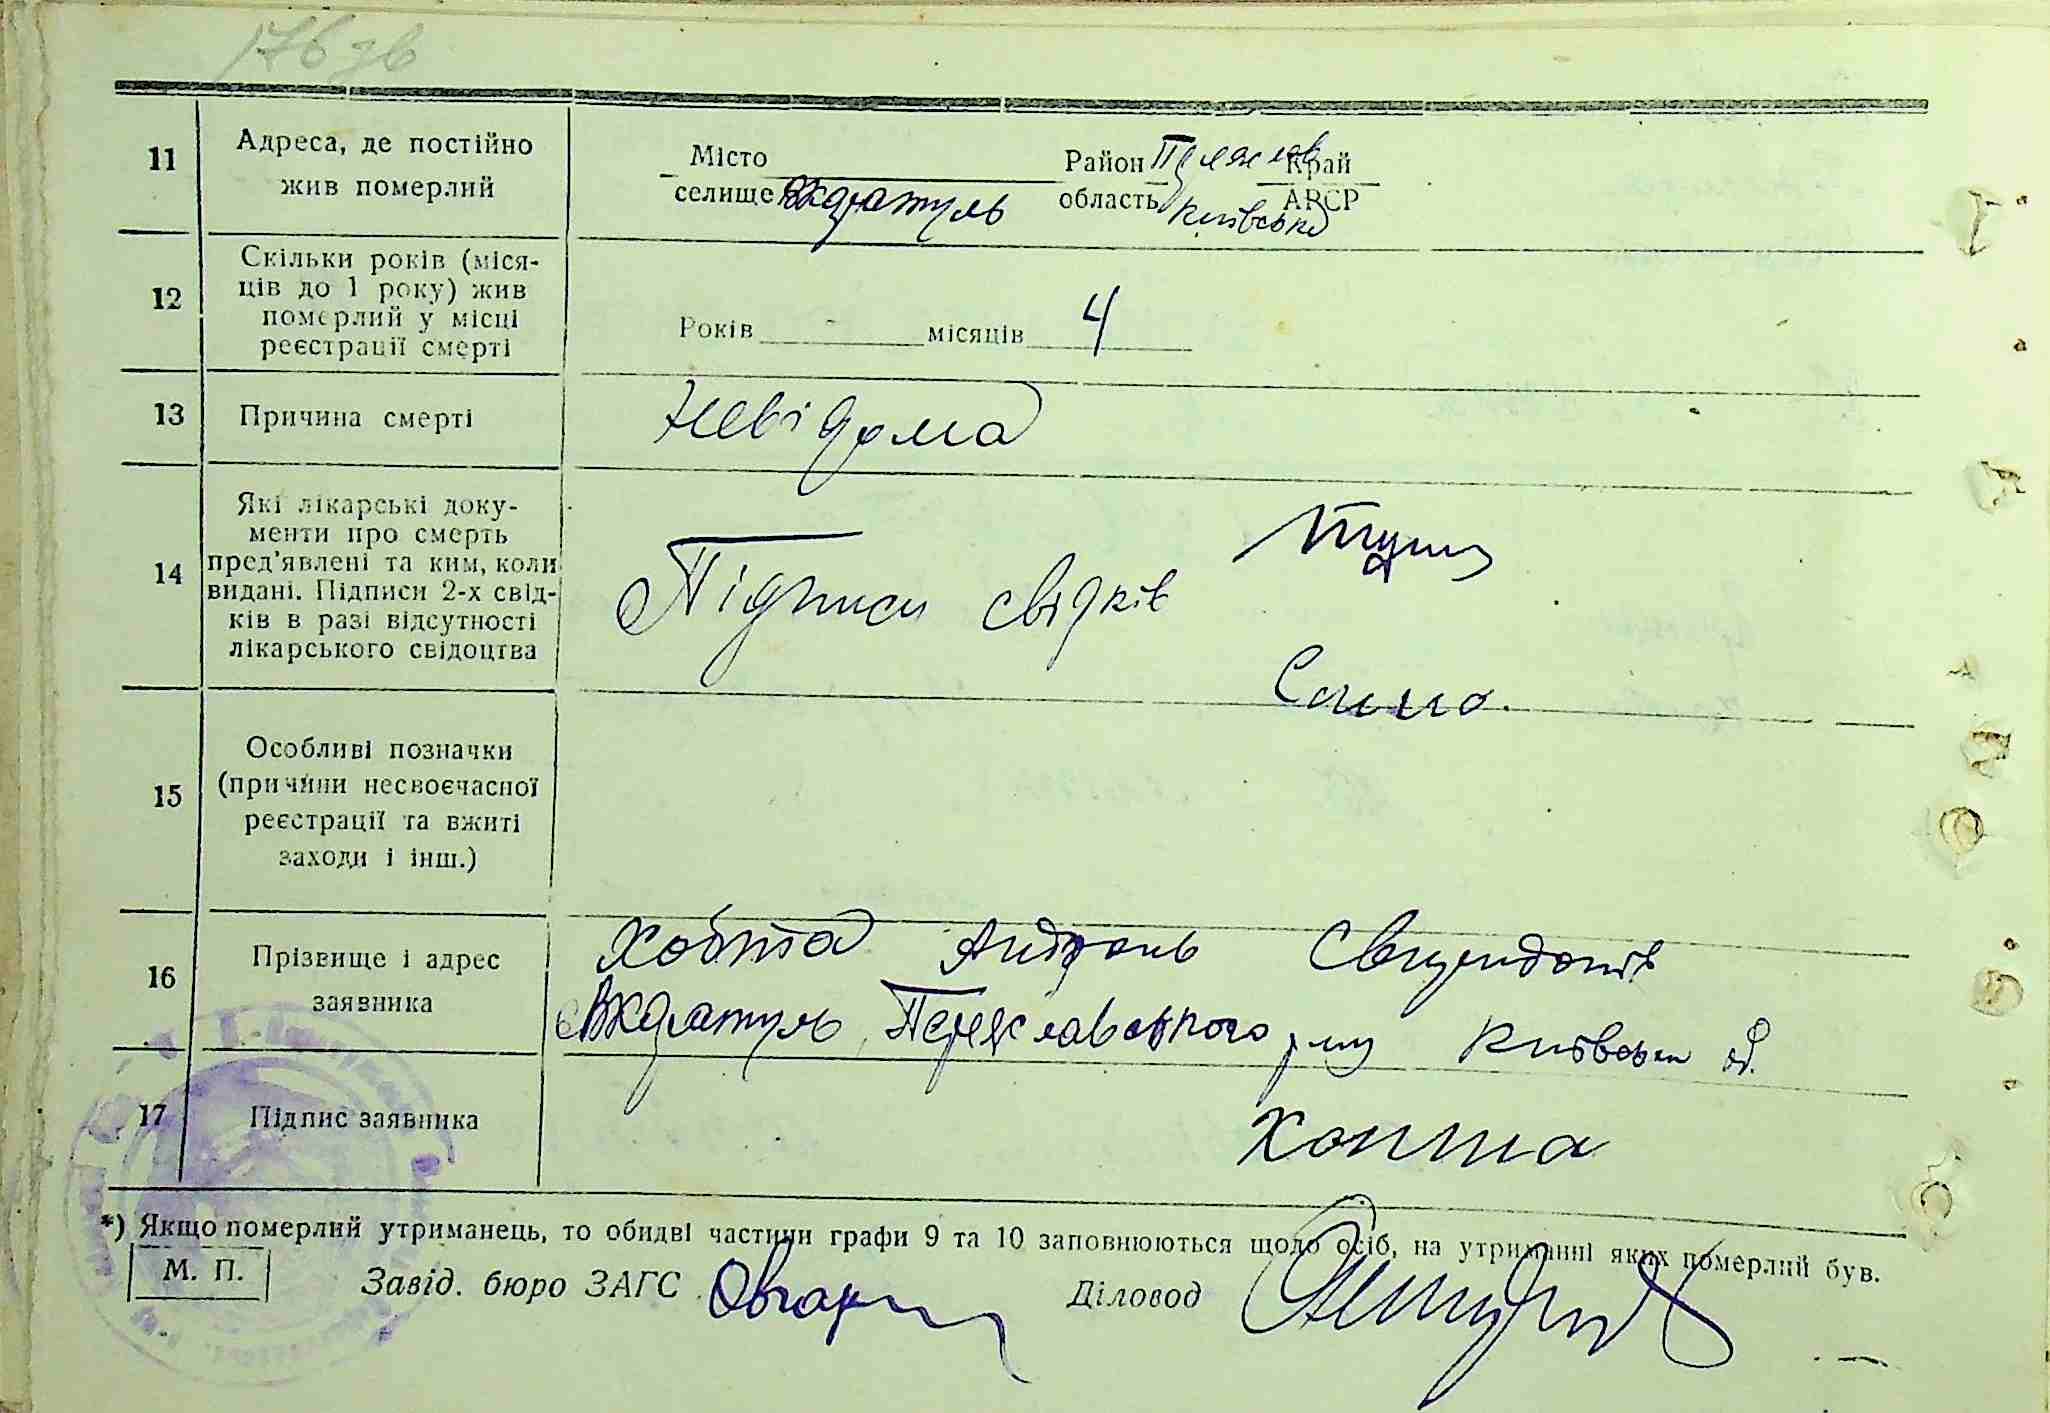 176 зв
11
Адреса, де постійно
жив померлий
Місто
селище
Район Переяслав Край
область Київська АРСР
12
Скільки років (міся-
ців до 1 року) жив
померлий у місці
реєстрації смерті
Років - місяців 4
13
Причина смерті
Невідома
14
Які лікарські доку-
менти про смерть
пред'явлені та ким, коли
видані. Підписи 2-х свід-
ків в разі відсутності
лікарського свідоцтва
Підписи свідків
15
Особливі позначки
(причини несвоєчасної
реєстрації та вжиті
заходи і інш.)
16
Прізвище і адрес
заявника
Хобта
Переяславського р-ну Київськи об.
17
Підпис заявника
Хопта
*) Якщо померлий утриманець, то обидві частини графи 9 та 10 заповнюються щодо осіб, на утриманні яких померлий був.
М. П.
Завід. бюро ЗАГС
Діловод